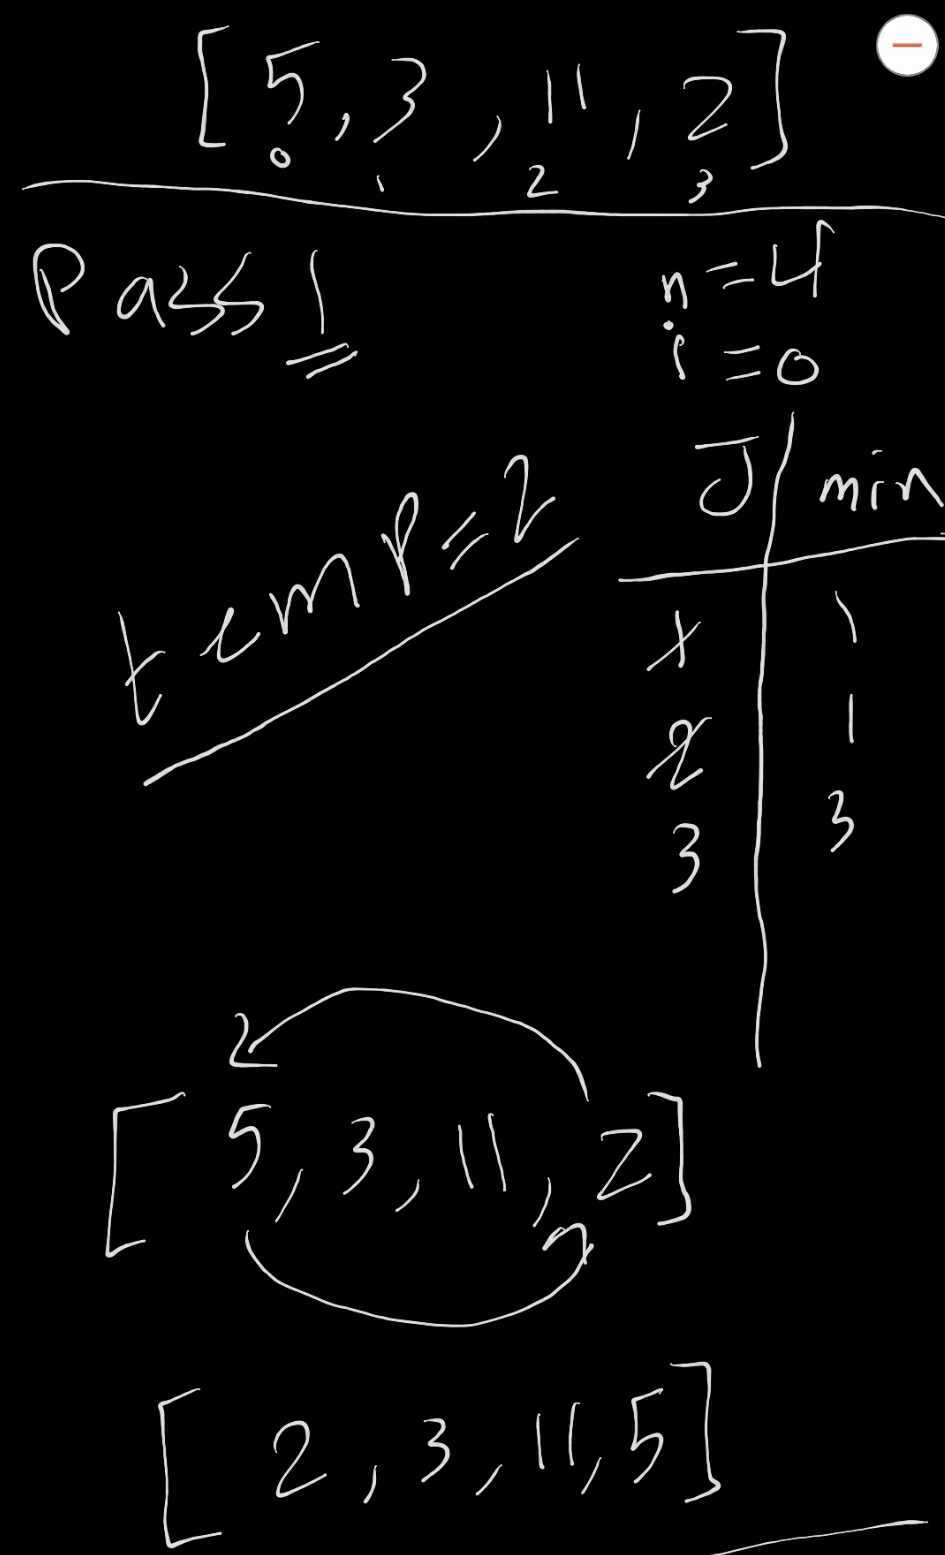 [ 5, 3, 11, 2 ]
0 1 2 3
Pass 1
n = 4
i = 0
J min
temp = 2
1 1
2 1
3 3
2
[ 5, 3, 11, 2 ]
[ 2, 3, 11, 5 ]